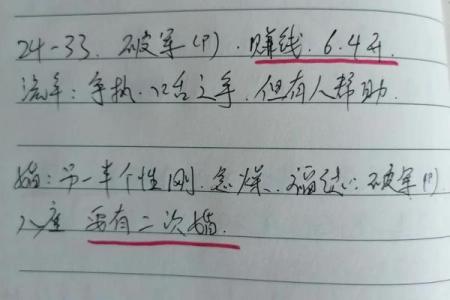 24-33. 破军(P). 赚钱. 6.4开
流年: 争执. 口舌之争. 但有人帮助.
婚: 另一半个性刚. 急燥. 福德: 破军(P)
入座 要有二次婚.